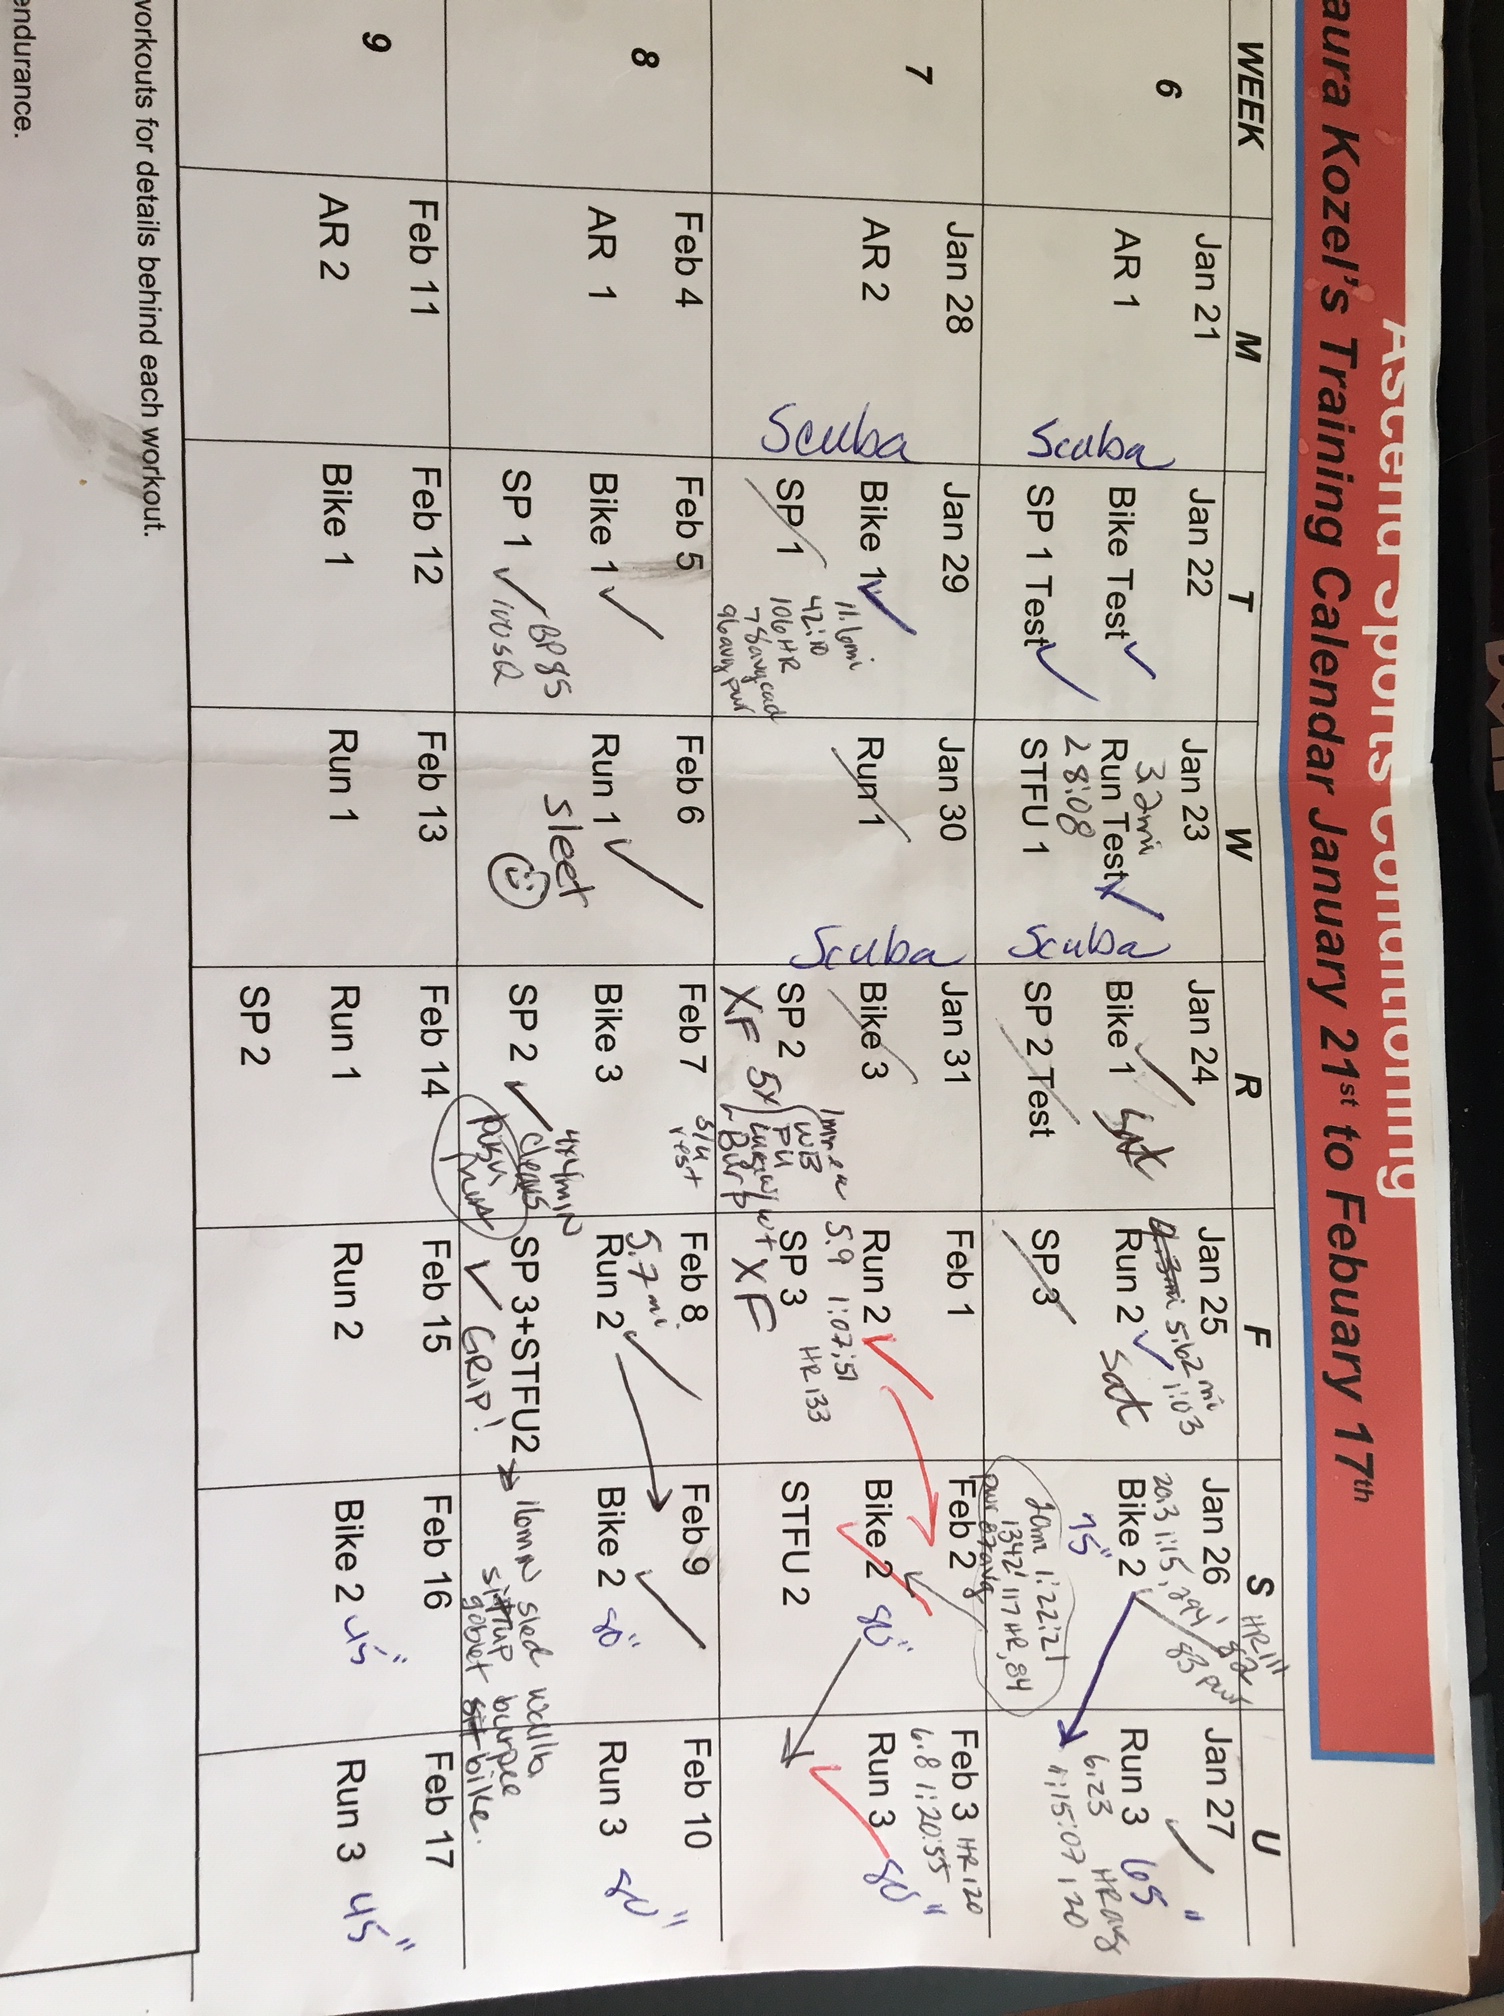 Ascend Sports Conditioning
aura Kozel's Training Calendar January 21st to Febuary 17th
WEEK M T W R F S U
6
Jan 21
AR 1
Scuba
Jan 22
Bike Test ✓
SP 1 Test ✓
Jan 23
3.2mi
Run Test ✓
28:08
STFU 1
Scuba
Jan 24
Bike 1 ✓
SP 2 Test
Jan 25
5.62 mi
1:03
Run 2 ✓ sat
SP 3
HR 111
Jan 26
20.3 1:15, 294' 82
83 pwr
Bike 2 ✓
75"
Jan 27
Run 3 ✓ 65"
6.23 HR avg
1:15:07 120
7
Jan 28
AR 2
Scuba
Jan 29
Bike 1 ✓
11.6mi
42:10
106 HR
78 avg cad
96 avg pwr
SP 1
Jan 30
Run 1
Scuba
Jan 31
Bike 3
SP 2
1min ea
WB
PU
XF 5x
Burp
Feb 1
Run 2 ✓
5.9 1:07:51
HR 133
SP 3
XF
20mi 1:22:21
1342' 117 HR, 84
pwr 87 avg
Feb 2
Bike 2 ✓ 80"
STFU 2
Feb 3 HR 120
6.8 1:20:55
Run 3 80"
8
Feb 4
AR 1
Feb 5
Bike 1 ✓
SP 1 ✓ BP 85
100 SQ
Feb 6
Run 1 ✓
sleet
Feb 7
Bike 3
SP 2 ✓
4x4min
cleans
rest
push
Feb 8
5.7 mi
Run 2 ✓
SP 3+STFU2
✓ GRIP!
16min sled wallb,
situp burpee
goblet bike.
Feb 9
Bike 2 ✓ 80"
Feb 10
Run 3 80"
9
Feb 11
AR 2
Feb 12
Bike 1
Feb 13
Run 1
Feb 14
Run 1
SP 2
Feb 15
Run 2
Feb 16
Bike 2 45"
Feb 17
Run 3 45"
workouts for details behind each workout.
endurance.